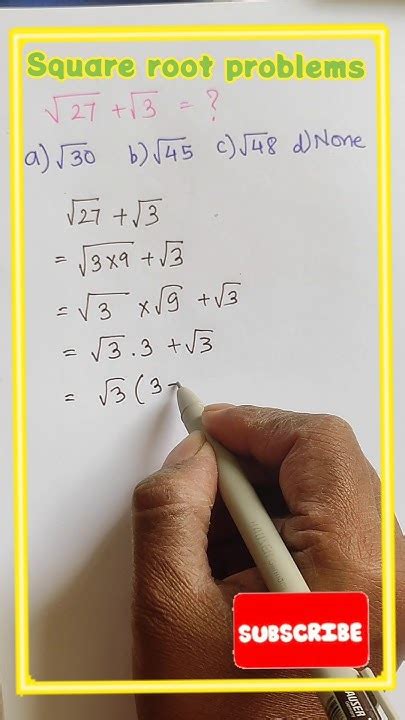 Square root problems
√27 + √3 = ?
a) √30 b) √45 c) √48 d) None
√27 + √3
= √3×9 + √3
= √3 × √9 + √3
= √3 . 3 + √3
= √3 (3 -
SUBSCRIBE